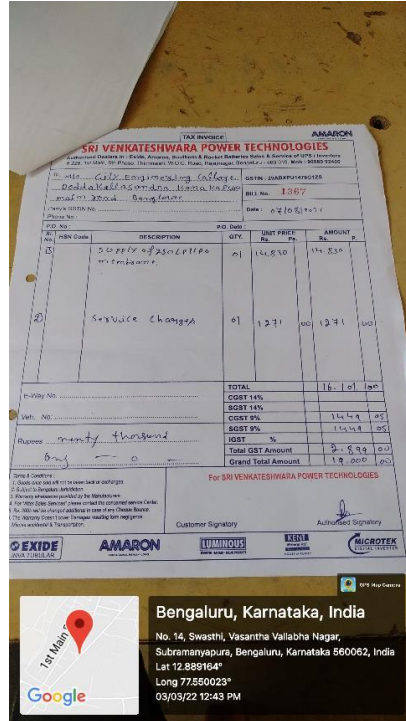 TAX INVOICE
AMARON
SRI VENKATESHWARA POWER TECHNOLOGIES
Authorised Dealers in : Exide, Amaron, Southern & Rocket Batteries Sales & Service of UPS / Inverters
To M/s. City Engineering College
Doddakallasandra Kanakapura
main road Banglore
GSTIN :
BILL No. 1367
Date : 07/08/2021
Party's GSTIN No.
Phone No :
P.O. No :
P.O. Date :
Sr. No. HSN Code DESCRIPTION QTY. UNIT PRICE Rs. Ps. AMOUNT Rs. P.
1) Supply of 250LPH RO 01 14,830 14,830
membrane
2) Service charges 01 1271 00 1271 00
TOTAL 16,101 00
E-Way No.
CGST 14%
SGST 14%
Veh. No.
CGST 9% 1449 05
SGST 9% 1449 05
IGST %
Total GST Amount 2,899 00
Grand Total Amount 19,000 00
Rupees
Terms & Conditions :
1. Goods once sold will not be taken back or exchanged.
2. Subject to Bengaluru Jurisdiction.
3. Warranty whatsoever provided by the Manufacturers.
For SRI VENKATESHWARA POWER TECHNOLOGIES
Customer Signatory
Authorised Signatory
EXIDE
INVA TUBULAR
AMARON
LUMINOUS
MICROTEK
DIGITAL INVERTER
GPS Map Camera
1st Main
Google
Bengaluru, Karnataka, India
No. 14, Swasthi, Vasantha Vallabha Nagar,
Subramanyapura, Bengaluru, Karnataka 560062, India
Lat 12.889164°
Long 77.550023°
03/03/22 12:43 PM